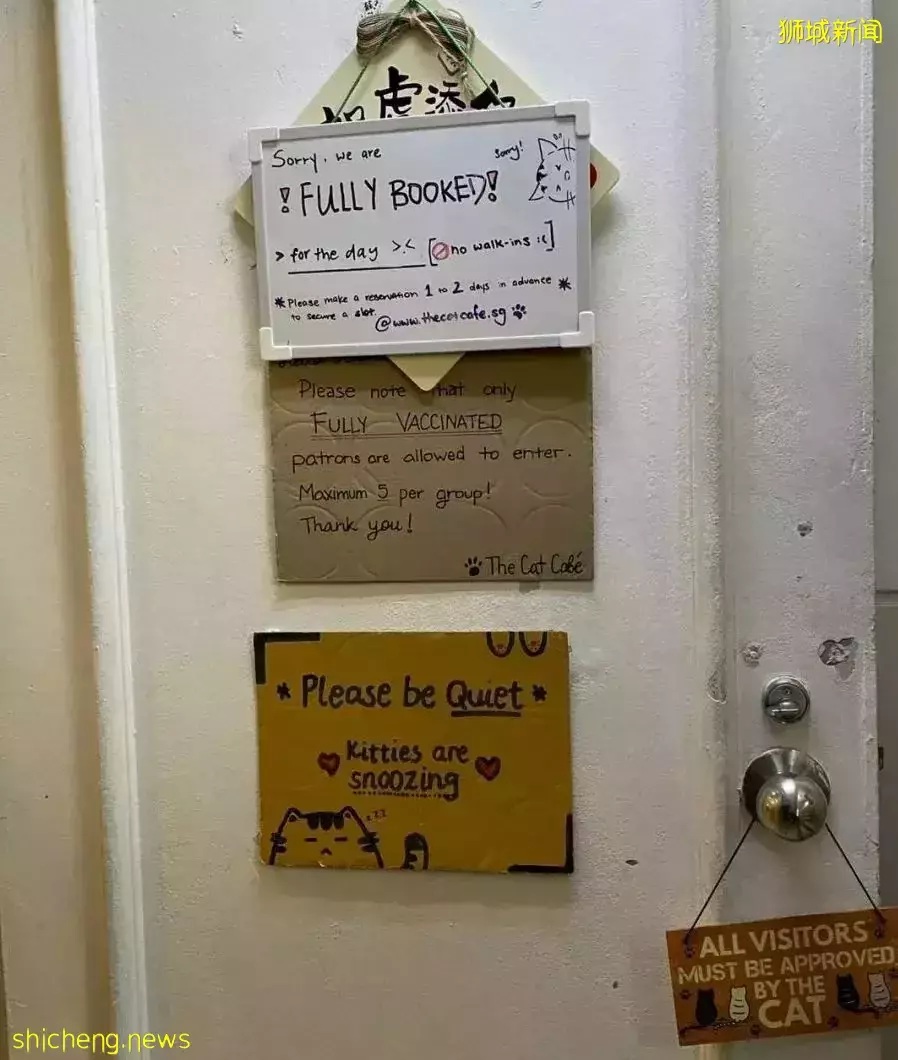 狮城新闻
虎添
Sorry, we are
sorry!
! FULLY BOOKED!
> for the day >.< [no walk-ins :(]
*Please make a reservation 1 to 2 days in advance *
to secure a slot.
@www.thecatcafe.sg
Please note that only
FULLY VACCINATED
patrons are allowed to enter.
Maximum 5 per group!
Thank you!
The Cat Café
* Please be Quiet *
Kitties are
snoozing
zzz
ALL VISITORS
MUST BE APPROVED
BY THE
CAT
shicheng.news